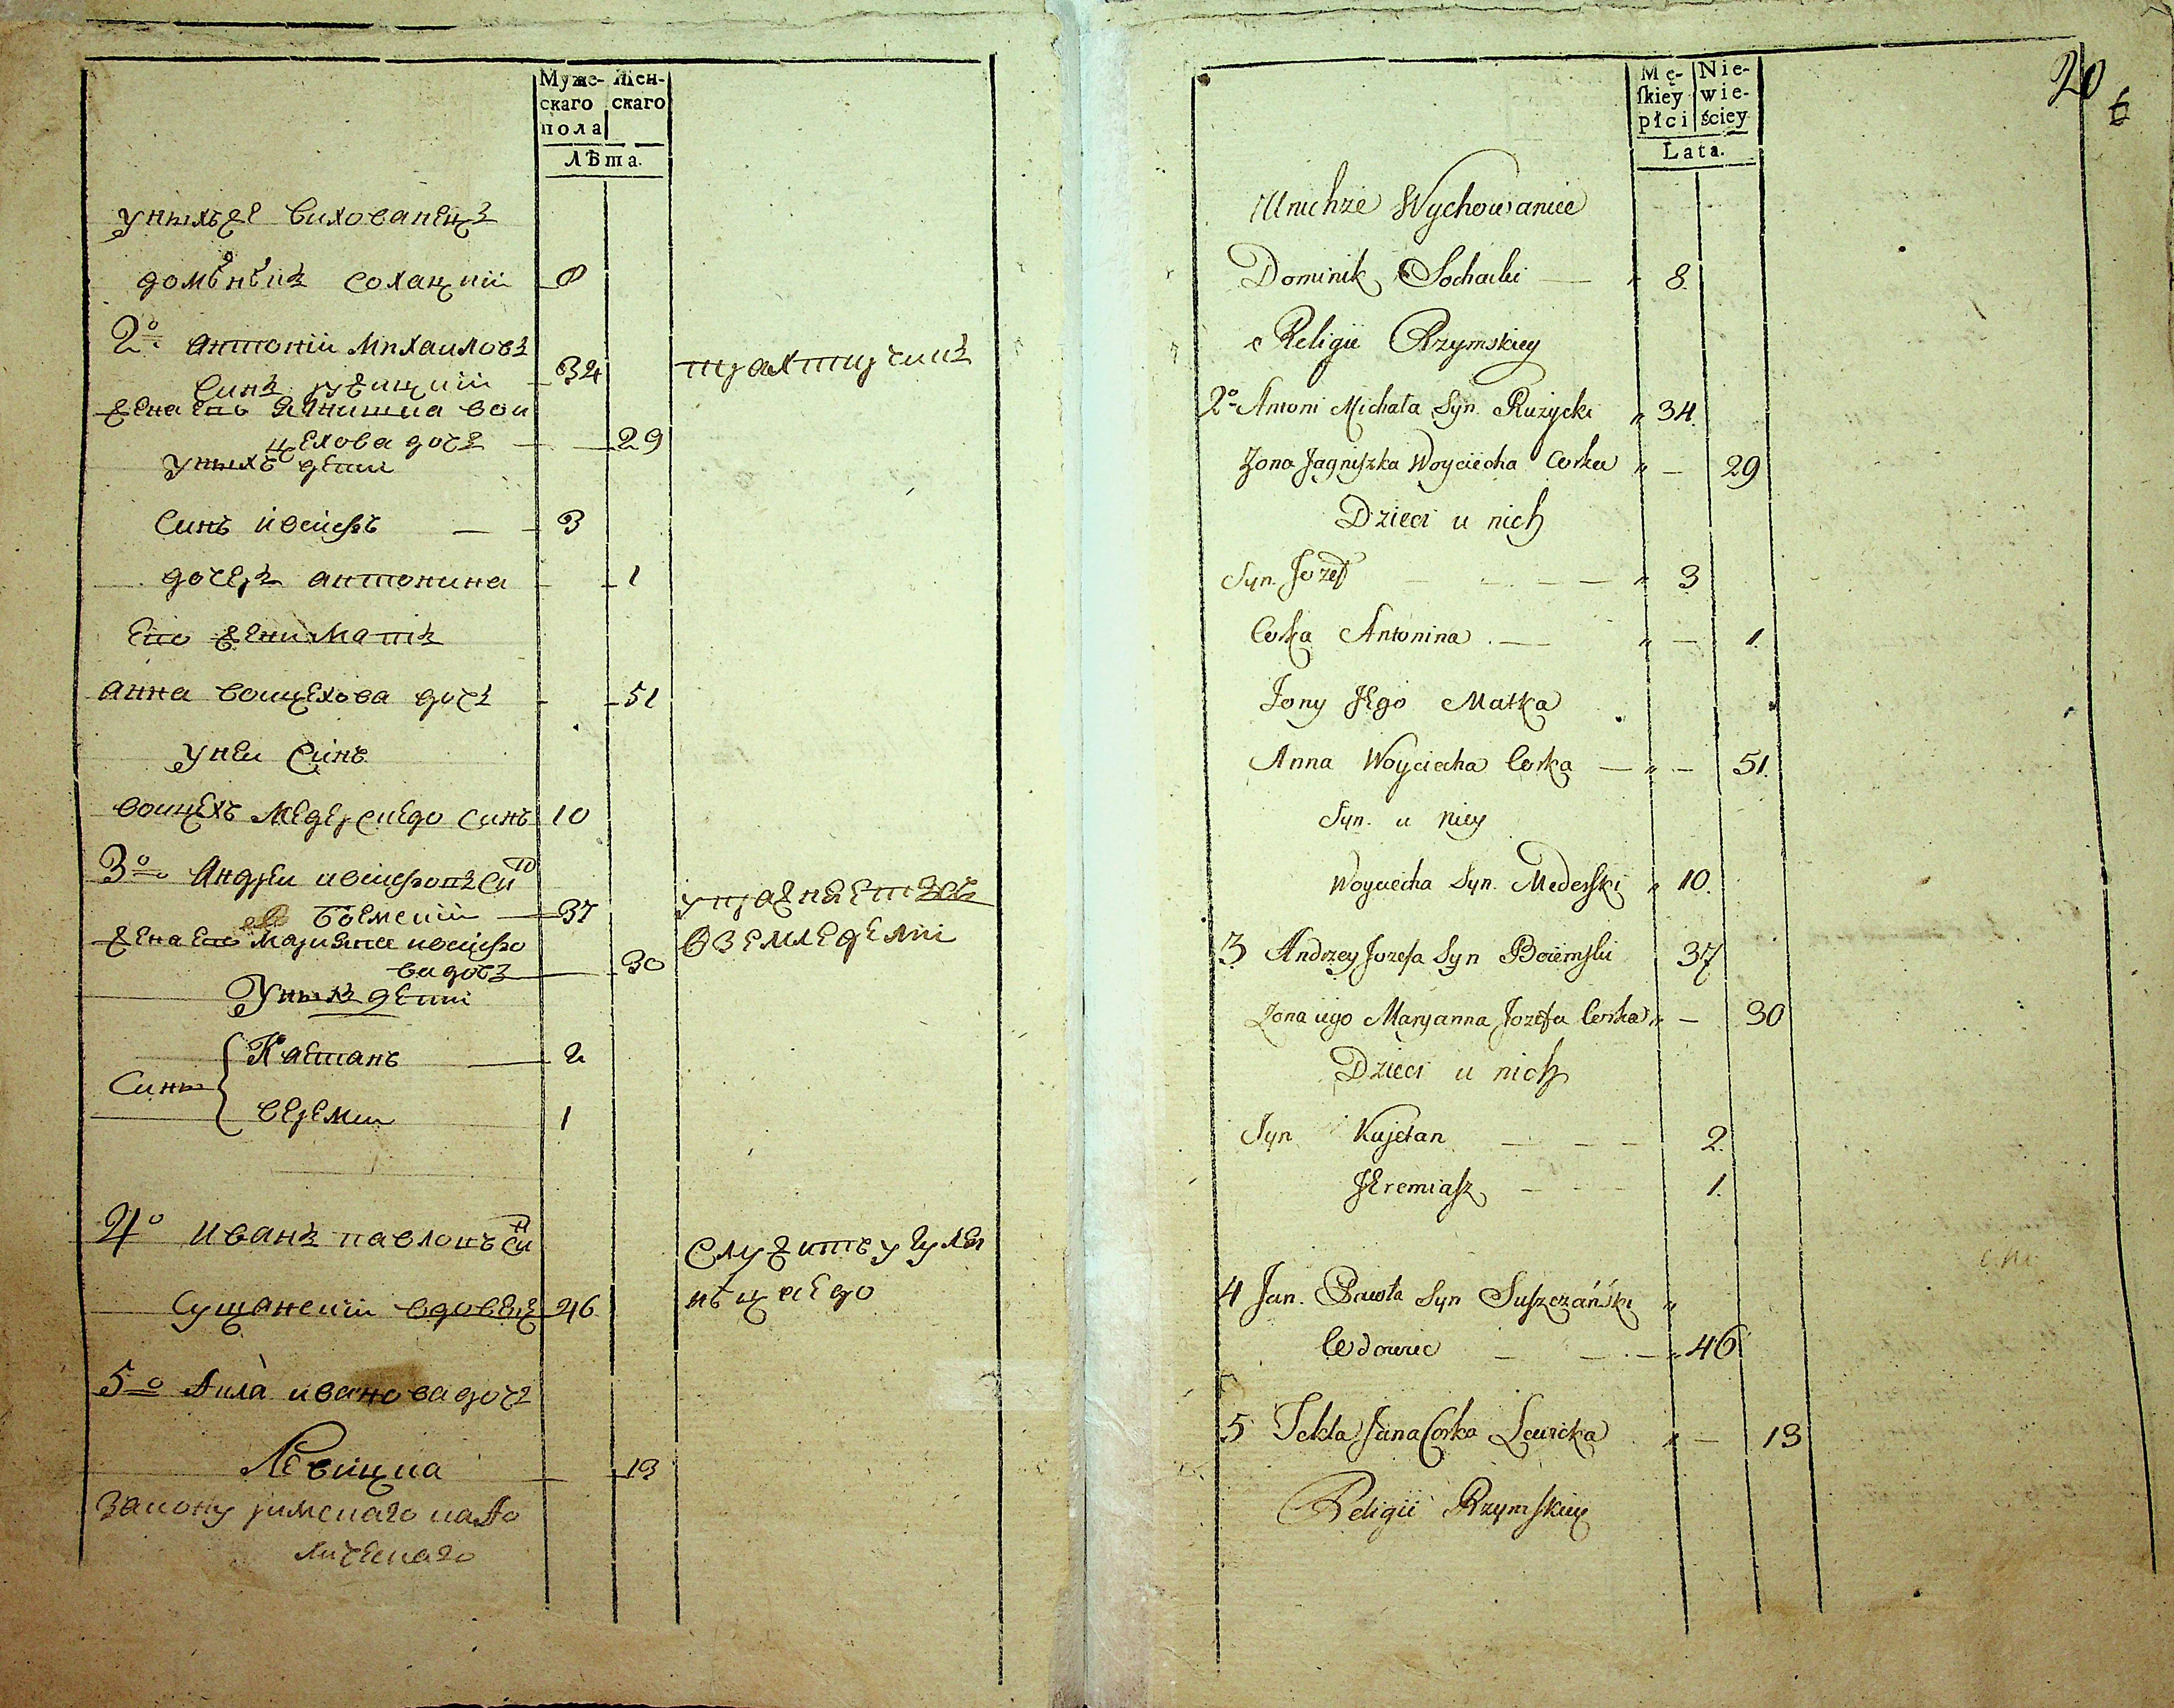 Муже- Жен-
скаго скаго
пола
Лѣта.
уныхъже вихованецъ
домѣнѣкъ сохацкій 8
2º антоній михаиловъ
синъ ружицкій 34 трахтирчикъ
жена его ягнишка вои
цехова дочъ 29
уныхъ дети
синъ иосифъ 3
дочеръ антонина 1
его жени матъ
анна воицехова дочъ 51
унеи синъ
воицехъ медерскего синъ 10
3º андреи иосифовъ син
боемскій 37 упражняетъся
жена его марияна иосифо
ва дочъ 30 вземледелій
уныхъ дети
сины Каетанъ 2
еремия 1
4º иванъ павловъ син
сущанскій вдовец 46 служитъ у гулев
нѣцкего
5º Fкла иванова дочъ
Левицка 13
закону римскаго каFо
лическаго
Mę- Nie-
ſkiey wie-
płci ściey
Lata.
20
6
Unichże Wychowaniec
Dominik Sochacki — " 8.
Religii Rzymskiey
2º Antoni Michała Syn Rużycki " 34.
Żona Jagniszka Woyciecha Corka " — 29
Dzieci u nich
Syn Jozef — — — " 3
Corka Antonina — " — 1.
Żony Jego Matka
Anna Woyciecha Corka — " — 51.
Syn u niey
Woyciecha Syn Mederſki " 10.
3 Andrzey Jozefa Syn Boiemſki 37
Żona iego Maryanna Jozefa Corka " — 30
Dzieci u nich
Syn Kajetan — — — 2.
Jeremiaſz — — — 1.
4 Jan Pawła Syn Suſzczański "
Wdowiec — — " 46
5 Tekla Jana Corka Lewicka " — 13
Religii Rzymſkiey